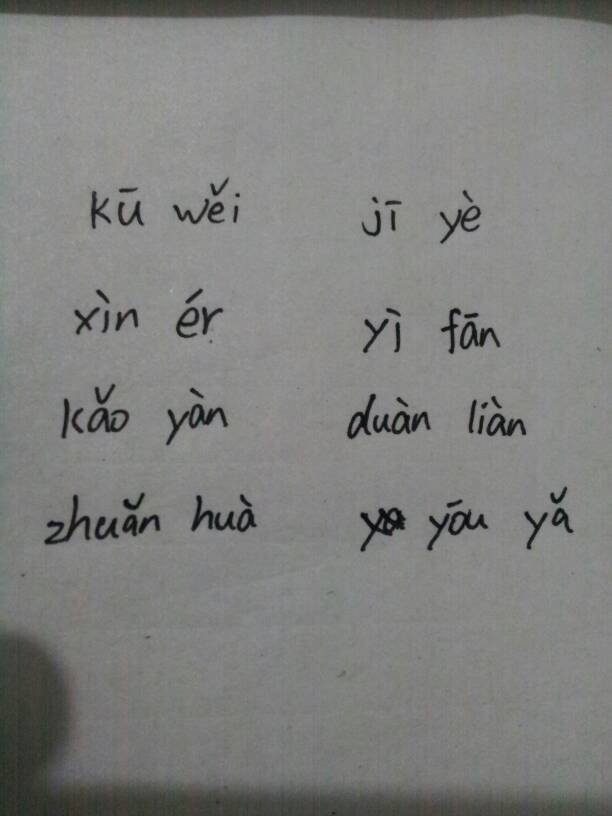 kū wěi jī yè
xìn ér yì fān
kǎo yàn duàn liàn
zhuǎn huà yōu yǎ